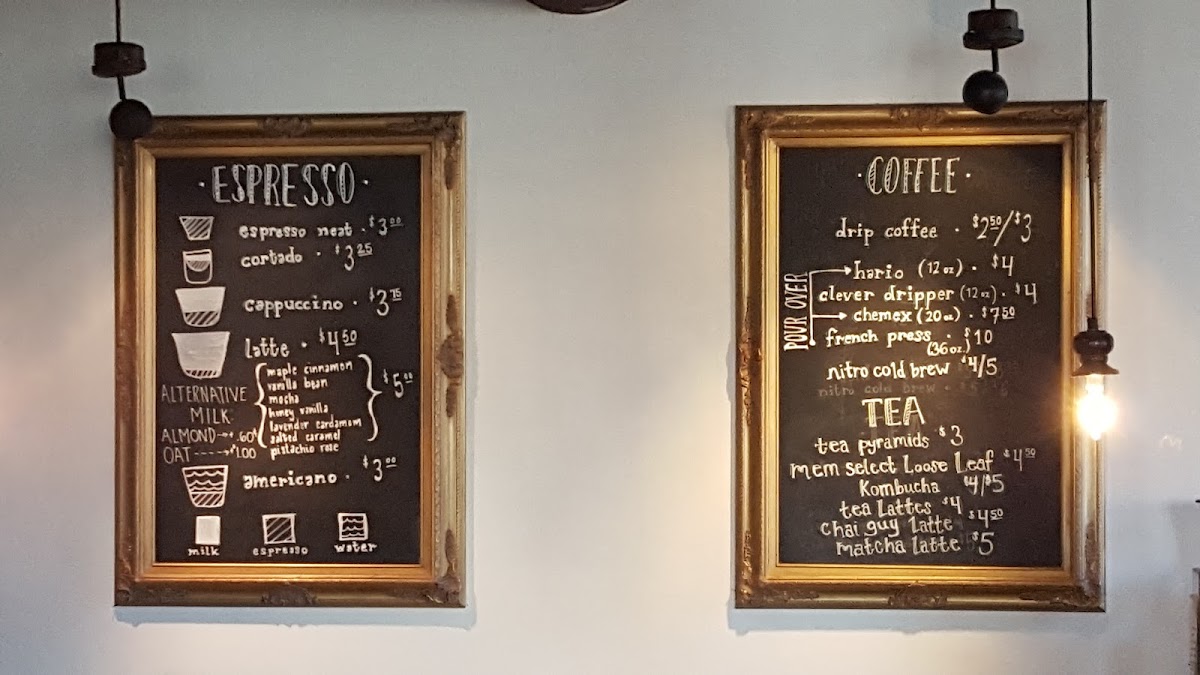 · ESPRESSO ·
espresso neat · $3.00
cortado · $3.25
cappuccino · $3.75
latte · $4.50
maple cinnamon
vanilla bean
mocha
honey vanilla
lavender cardamom
salted caramel
pistachio rose
$5.00
ALTERNATIVE
MILK:
ALMOND → + .60¢
OAT ----→ +1.00
americano · $3.00
milk espresso water
· COFFEE ·
drip coffee · $2.50/$3
POUR OVER
hario (12 oz) · $4
clever dripper (12 oz) · $4
chemex (20 oz) · $7.50
french press · $10
(36 oz.)
nitro cold brew $4/5
nitro cold brew ·
TEA
tea pyramids $3
mem select Loose Leaf $4.50
Kombucha $4/$5
tea Lattes $4
chai guy latte $4.50
matcha latte $5